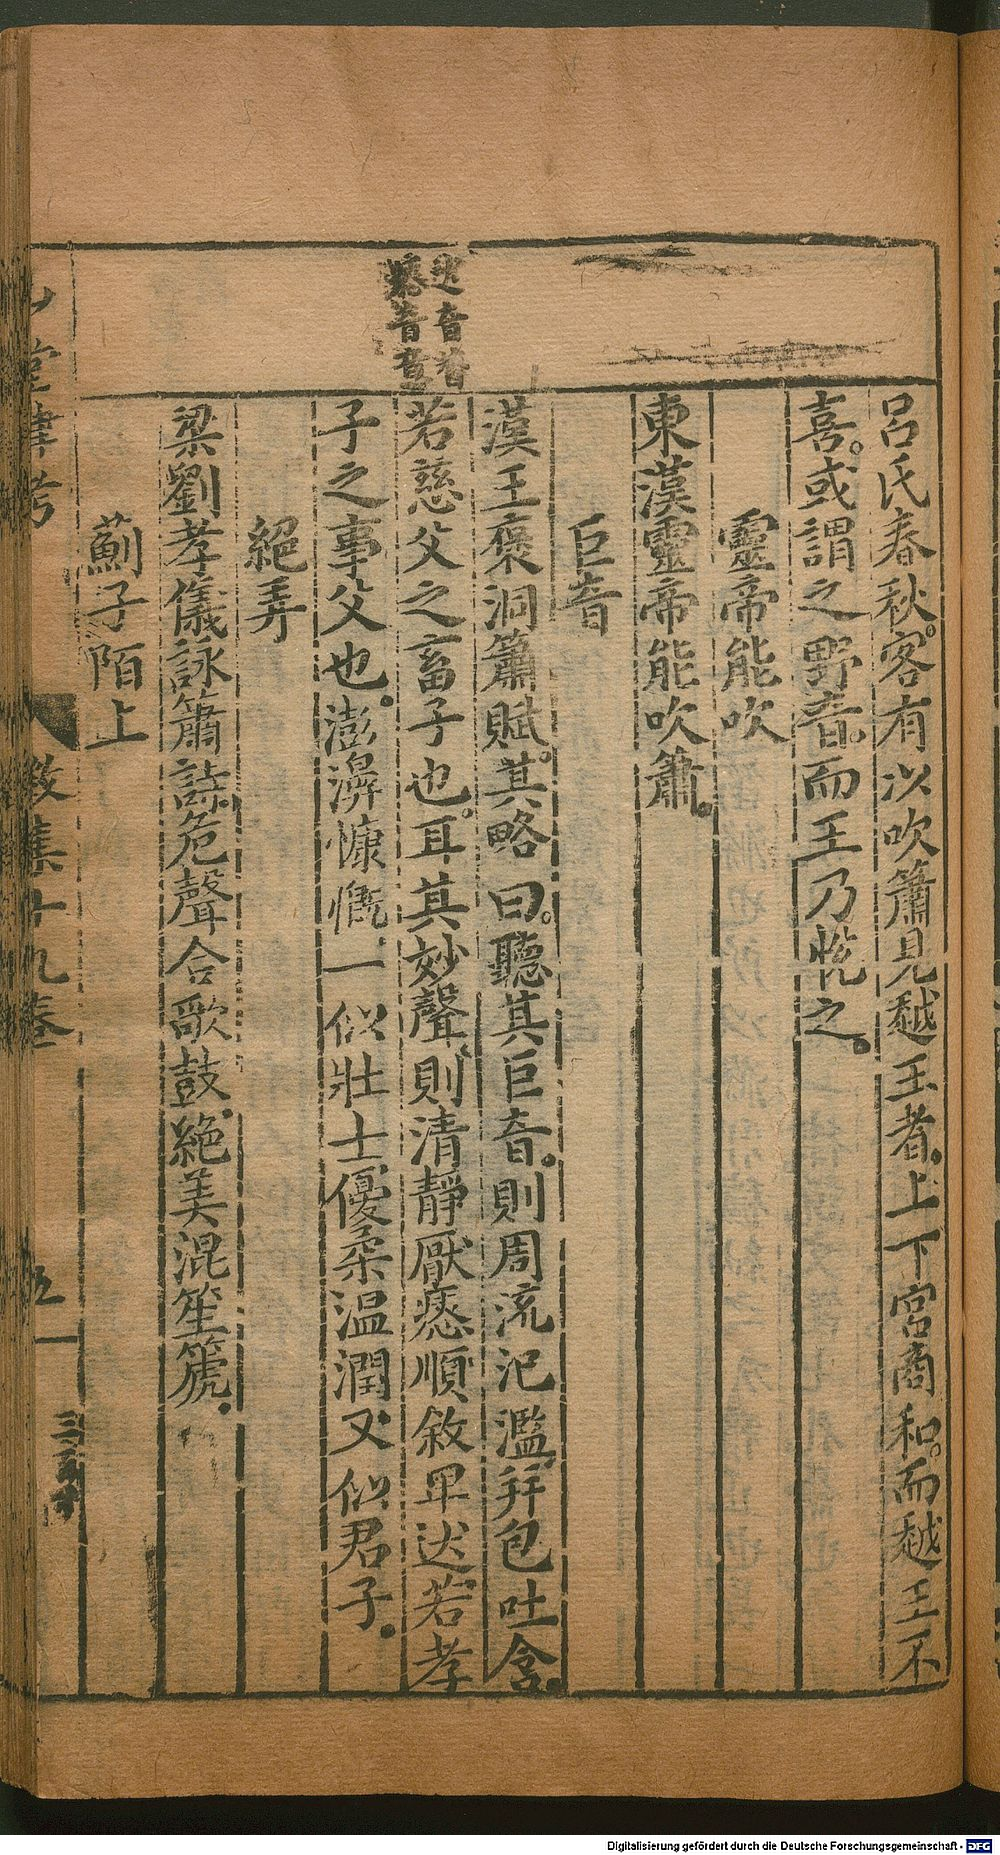 呂氏春秋。客有以吹簫見越王者。上下宮商和。而越王不
喜。或謂之野音。而王乃悅之。
靈帝能吹
東漢靈帝能吹簫。
巨音
漢王褒洞簫賦。其略曰。聽其巨音。則周流汜濫。并包吐含。
若慈父之畜子也。耳其妙聲。則清靜厭㥷順敘卑迖。若孝
子之事父也。澎濞慷慨。一似壯士優柔温潤。又似君子。
絕弄
梁劉孝儀詠簫詩。危聲合歌鼓。絕美混笙篪。
薊子陌上
迖音沓
㥷音意
山堂肆考
徵集十九卷
五
Digitalisierung gefördert durch die Deutsche Forschungsgemeinschaft - DFG